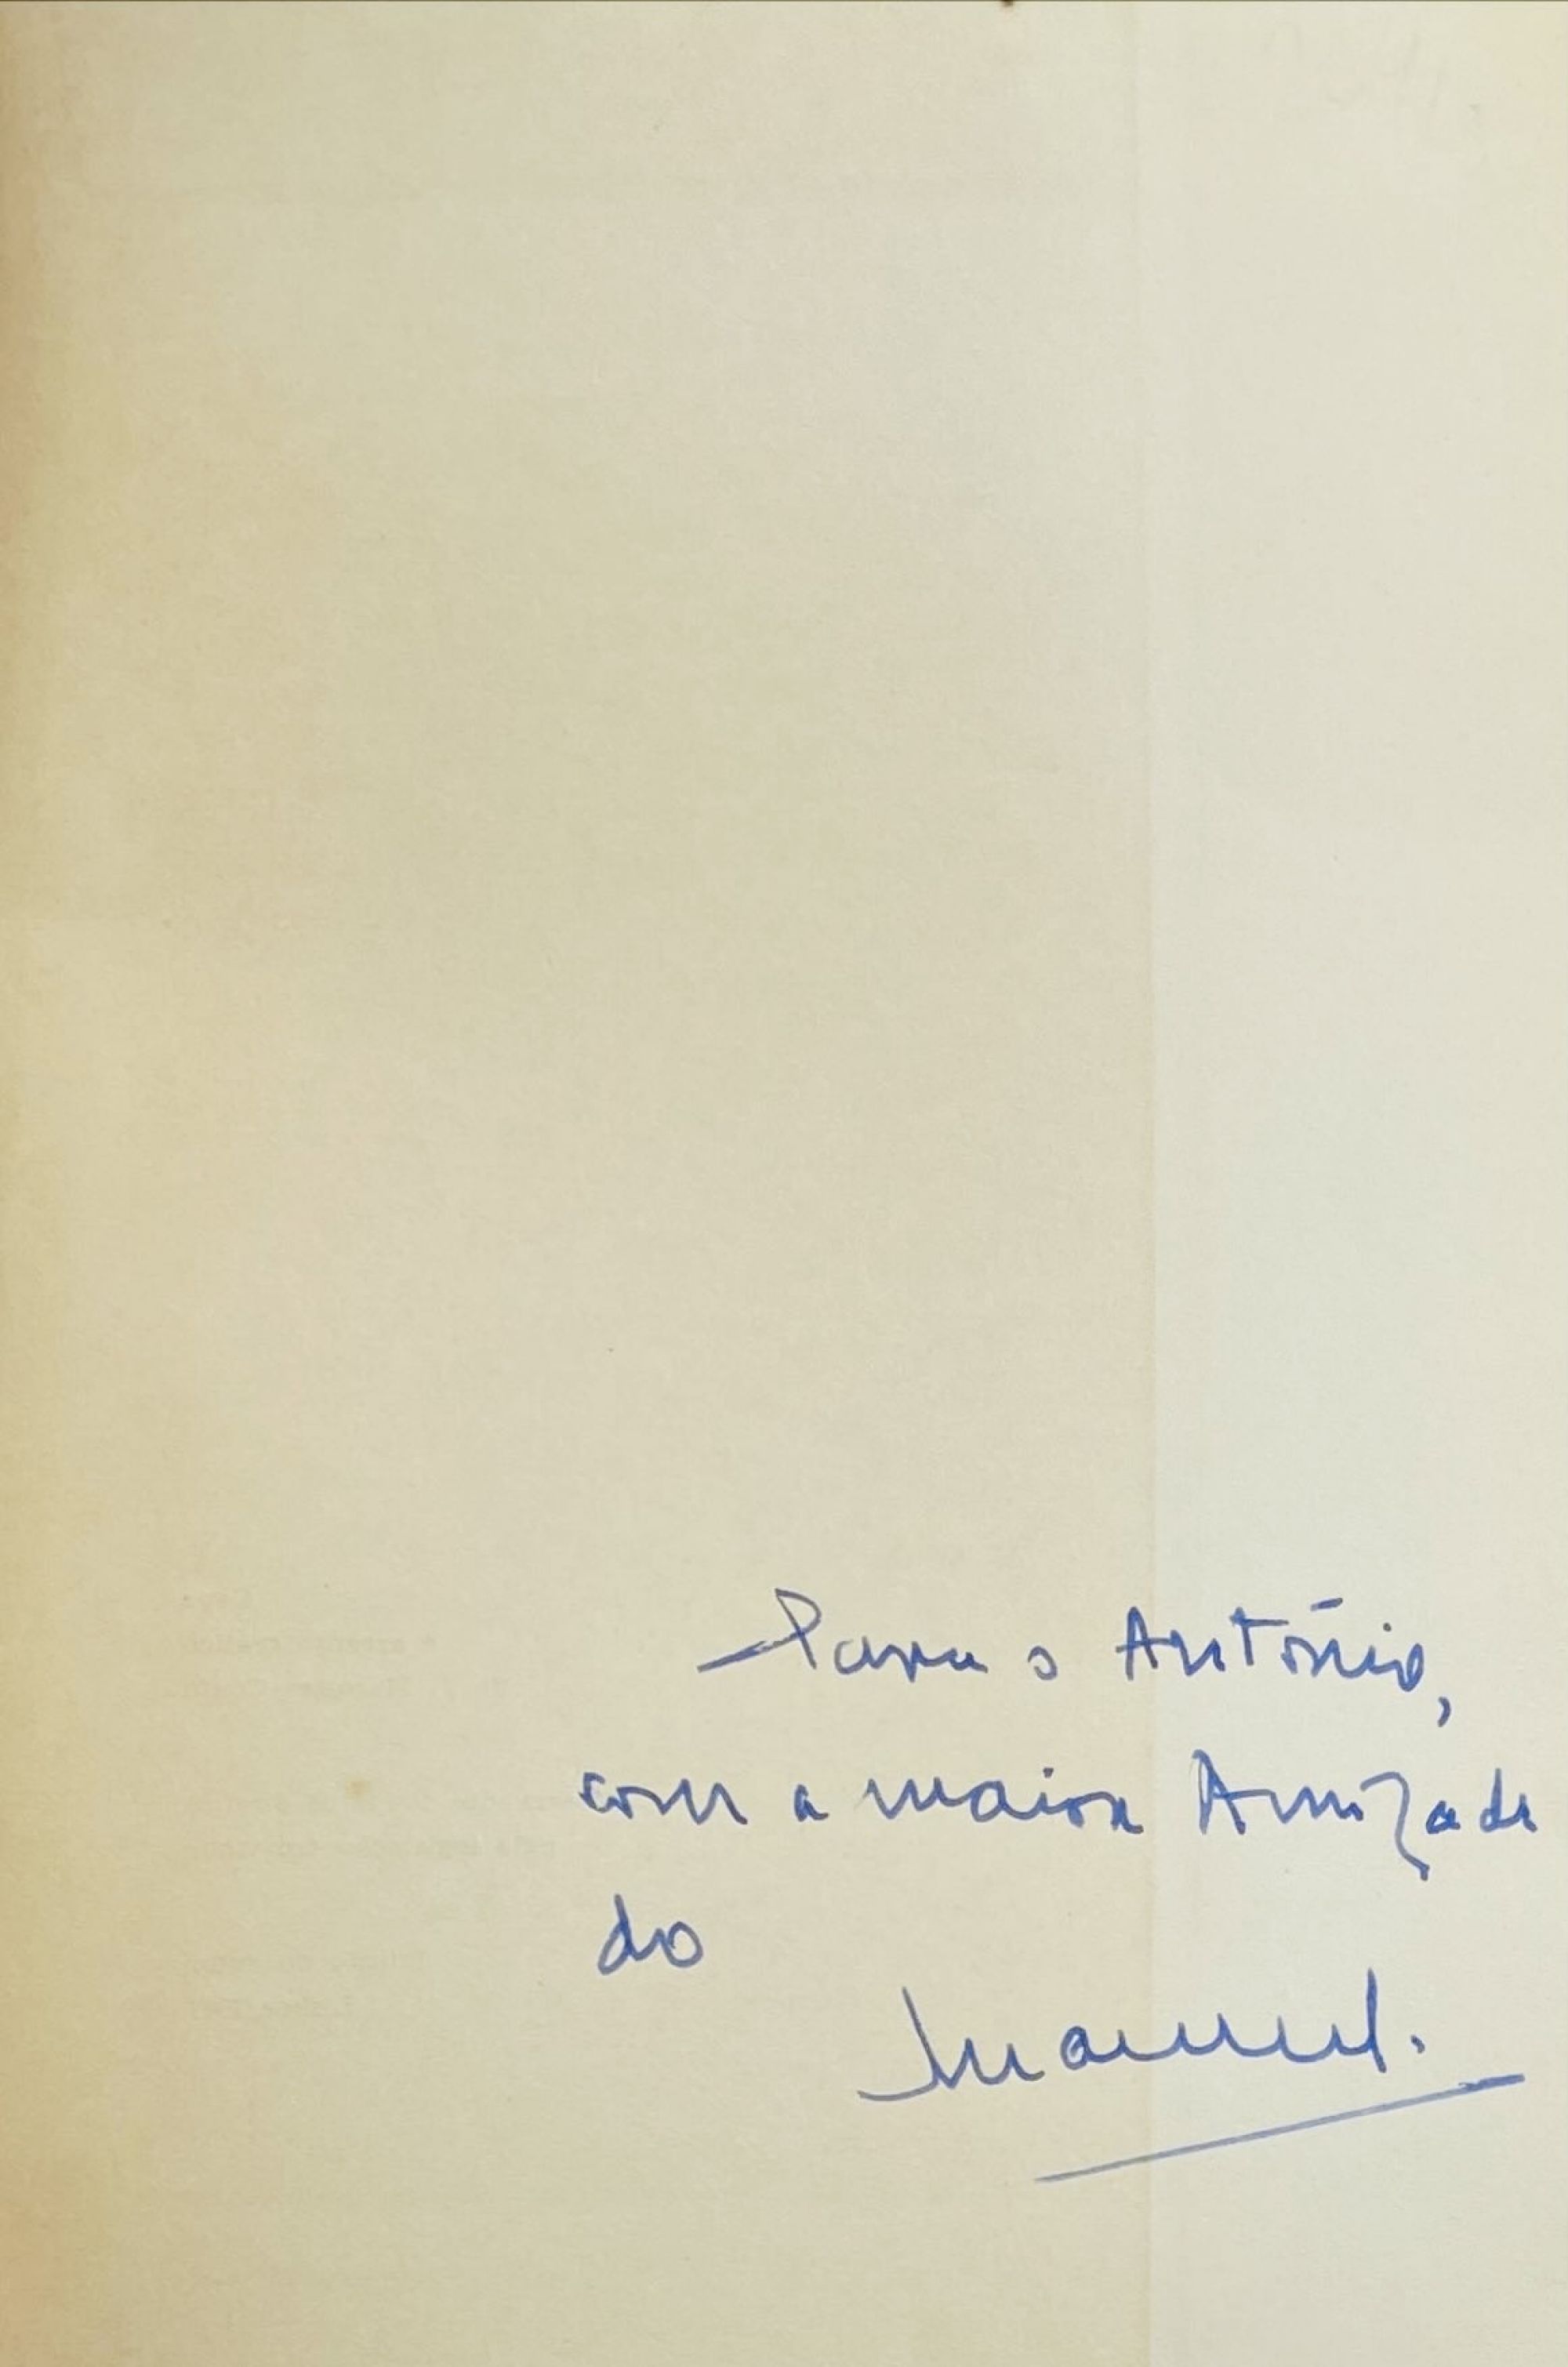 Para o António,
com a maior Amizade
do
Manuel.